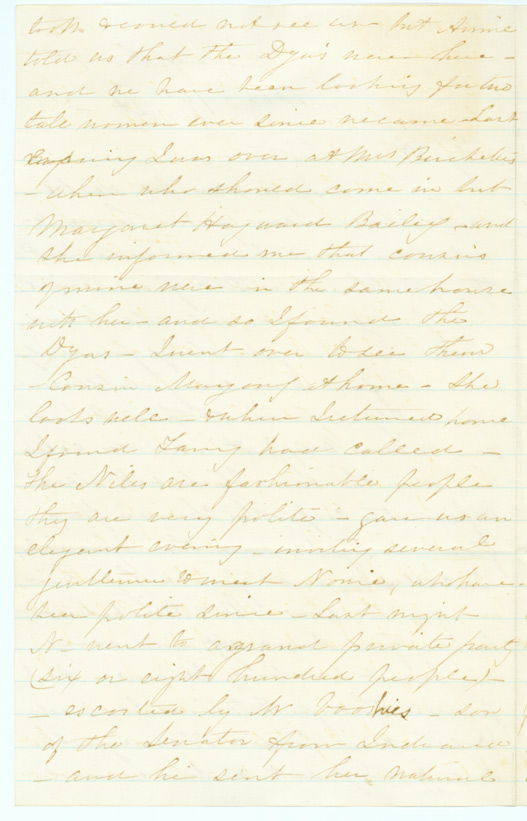 took & could not see us - but Annie
told us that the Dyas were here -
and we have been looking for two
tall women ever since we came - Last
evening I was over at Mrs
- when who should come in but
Margaret Hayward Bailey - and
she informed me that cousins
of mine were in the same house
with her - and so I found the
Dyas - I went over to see them
Cousin at home - She
looks well - & when I returned home
I found Fanny had called -
The Niles are fashionable people
they are very polite - gave us an
elegant evening - inviting several
gentlemen to meet Nonie, who have
been polite since - Last night
N- went to a grand private party
(six or eight hundred people) -
- escorted by Mr Voorhies - son
of the Senator from Indiana
- and he sent her natural